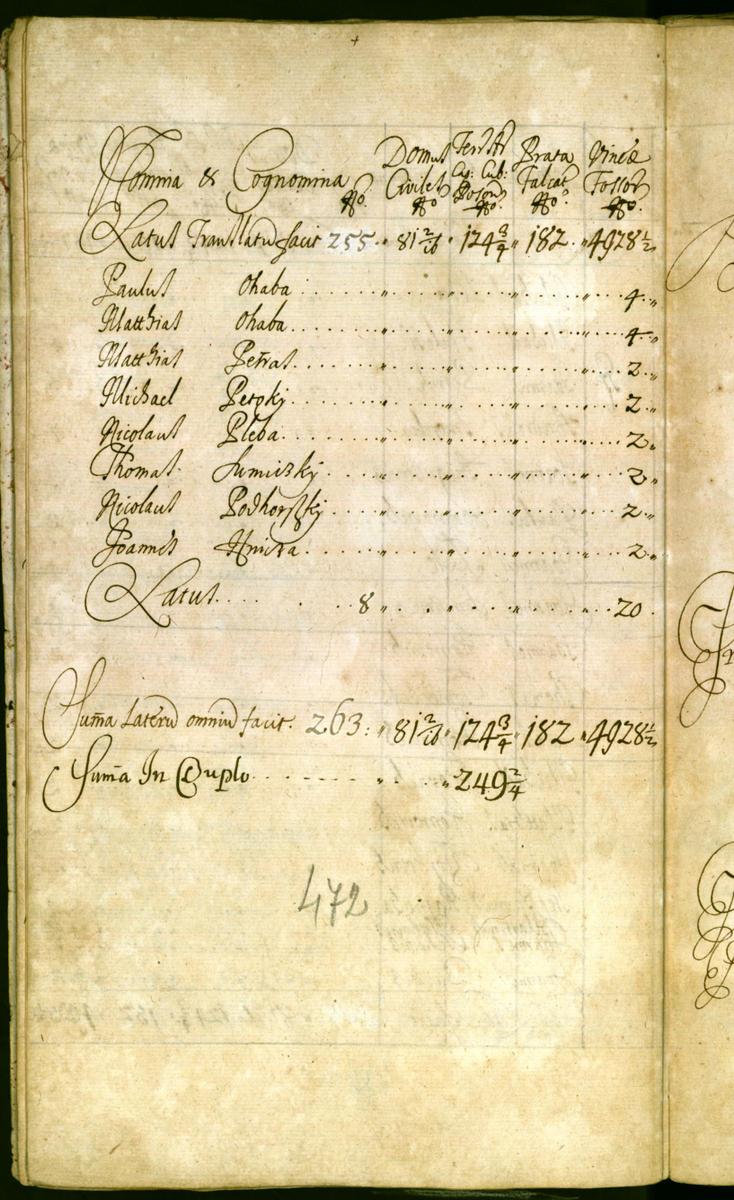 Nomina & Cognomina No. Domus Civiles No Terrae Cap: Cub: Poson No. Prata Falcat No. Vineae Fossor No.
Latus Translatum facit 255 " 81 2/16 " 124 3/4 " 182 " 4928 1/2
Paulus Ohaba " " " " 4 "
Matthias Ohaba " " " " 4 "
Matthias Petras " " " " 2 "
Michael Petpkÿ " " " " 2 "
Nicolaus Pleba " " " " 2 "
Thomas Sumiczkÿ " " " " 2 "
Nicolaus Podhorskÿ " " " " 2 "
Joannes Hnitka " " " " 2 "
Latus 8 " " " 20
Sum̄a Laterū omniū facit. 263: " 81 2/16 " 124 3/4 " 182 " 4928 1/2
Sum̄a In Duplo " " 249 2/4
472